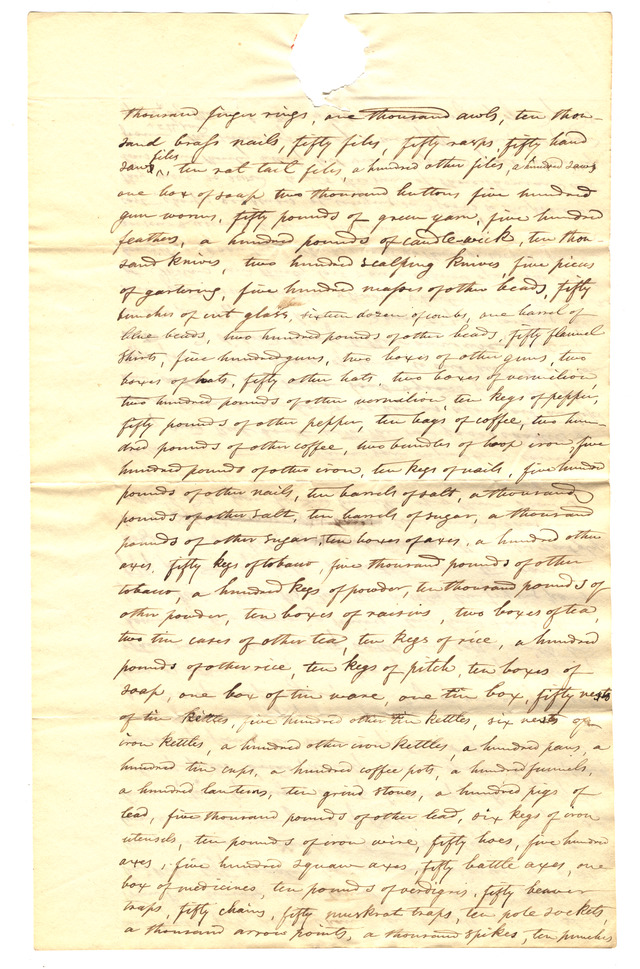 thousand finger rings, one thousand awls, ten thou-
sand brass nails, fifty files, fifty rasps, fifty hand
saw files, ten rat tail files, a hundred other files, a hundred saws
one box of soap two thousand buttons five hundred
gun worms, fifty pounds of green yarn, five hundred
feathers, a hundred pounds of candle-wick, ten thou-
sand knives, two hundred scalping knives, five pieces
of gartering, five hundred masses of other beads, fifty
bunches of cut glass, sixteen dozen of combs, one barrel of
blue beads, two hundred pounds of other beads, fifty flannel
shirts, five hundred guns, two boxes of other guns, two
boxes of hats, fifty other hats, two boxes of vermilion,
two hundred pounds of other vermilion, ten kegs of pepper,
fifty pounds of other pepper, ten bags of coffee, two hun-
dred pounds of other coffee, two bundles of hoop iron, five
hundred pounds of other iron, ten kegs of nails, five hundred
pounds of other nails, ten barrels of salt, a thousand
pounds of other salt, ten barrels of sugar, a thousand
pounds of other sugar, ten boxes of axes, a hundred other
axes, fifty kegs of tobacco, five thousand pounds of other
tobacco, a hundred kegs of powder, ten thousand pounds of
other powder, ten boxes of raisins, two boxes of tea,
two tin cases of other tea, ten kegs of rice, a hundred
pounds of other rice, ten kegs of pitch, ten boxes of
soap, one box of tin ware, one tin box, fifty nests
of tin kettles, five hundred other tin kettles, six nests of
iron kettles, a hundred other iron kettles, a hundred pans, a
hundred tin cups, a hundred coffee pots, a hundred funnels,
a hundred lanterns, ten grind stones, a hundred pigs of
lead, five thousand pounds of other lead, six kegs of iron
utensils, ten pounds of iron wire, fifty hoes, five hundred
axes, five hundred squaw axes, fifty battle axes, one
box of medicines, ten pounds of verdigris, fifty beaver
traps, fifty chains, fifty muskrat traps, ten pole sockets,
a thousand arrow points, a thousand spikes, ten punches